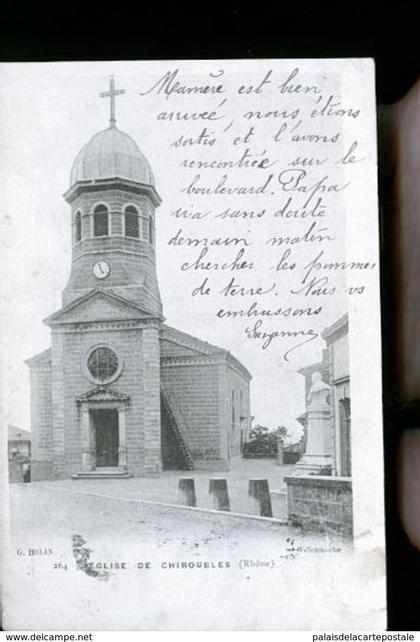 Mamère est bien
arrivée, nous étions
sortis et l'avons
rencontrée sur le
boulevard. Papa
ira sans doute
demain matin
chercher les pommes
de terre. Nous vs
embrassons
Suzanne
G. BELIN
Villefranche
264 EGLISE DE CHIROUBLES (Rhône)
palaisdelacartepostale.com